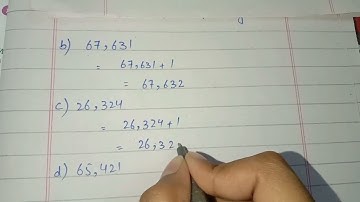 b) 67,631
= 67,631 + 1
= 67,632
c) 26,324
= 26,324 + 1
= 26,32
d) 65,421